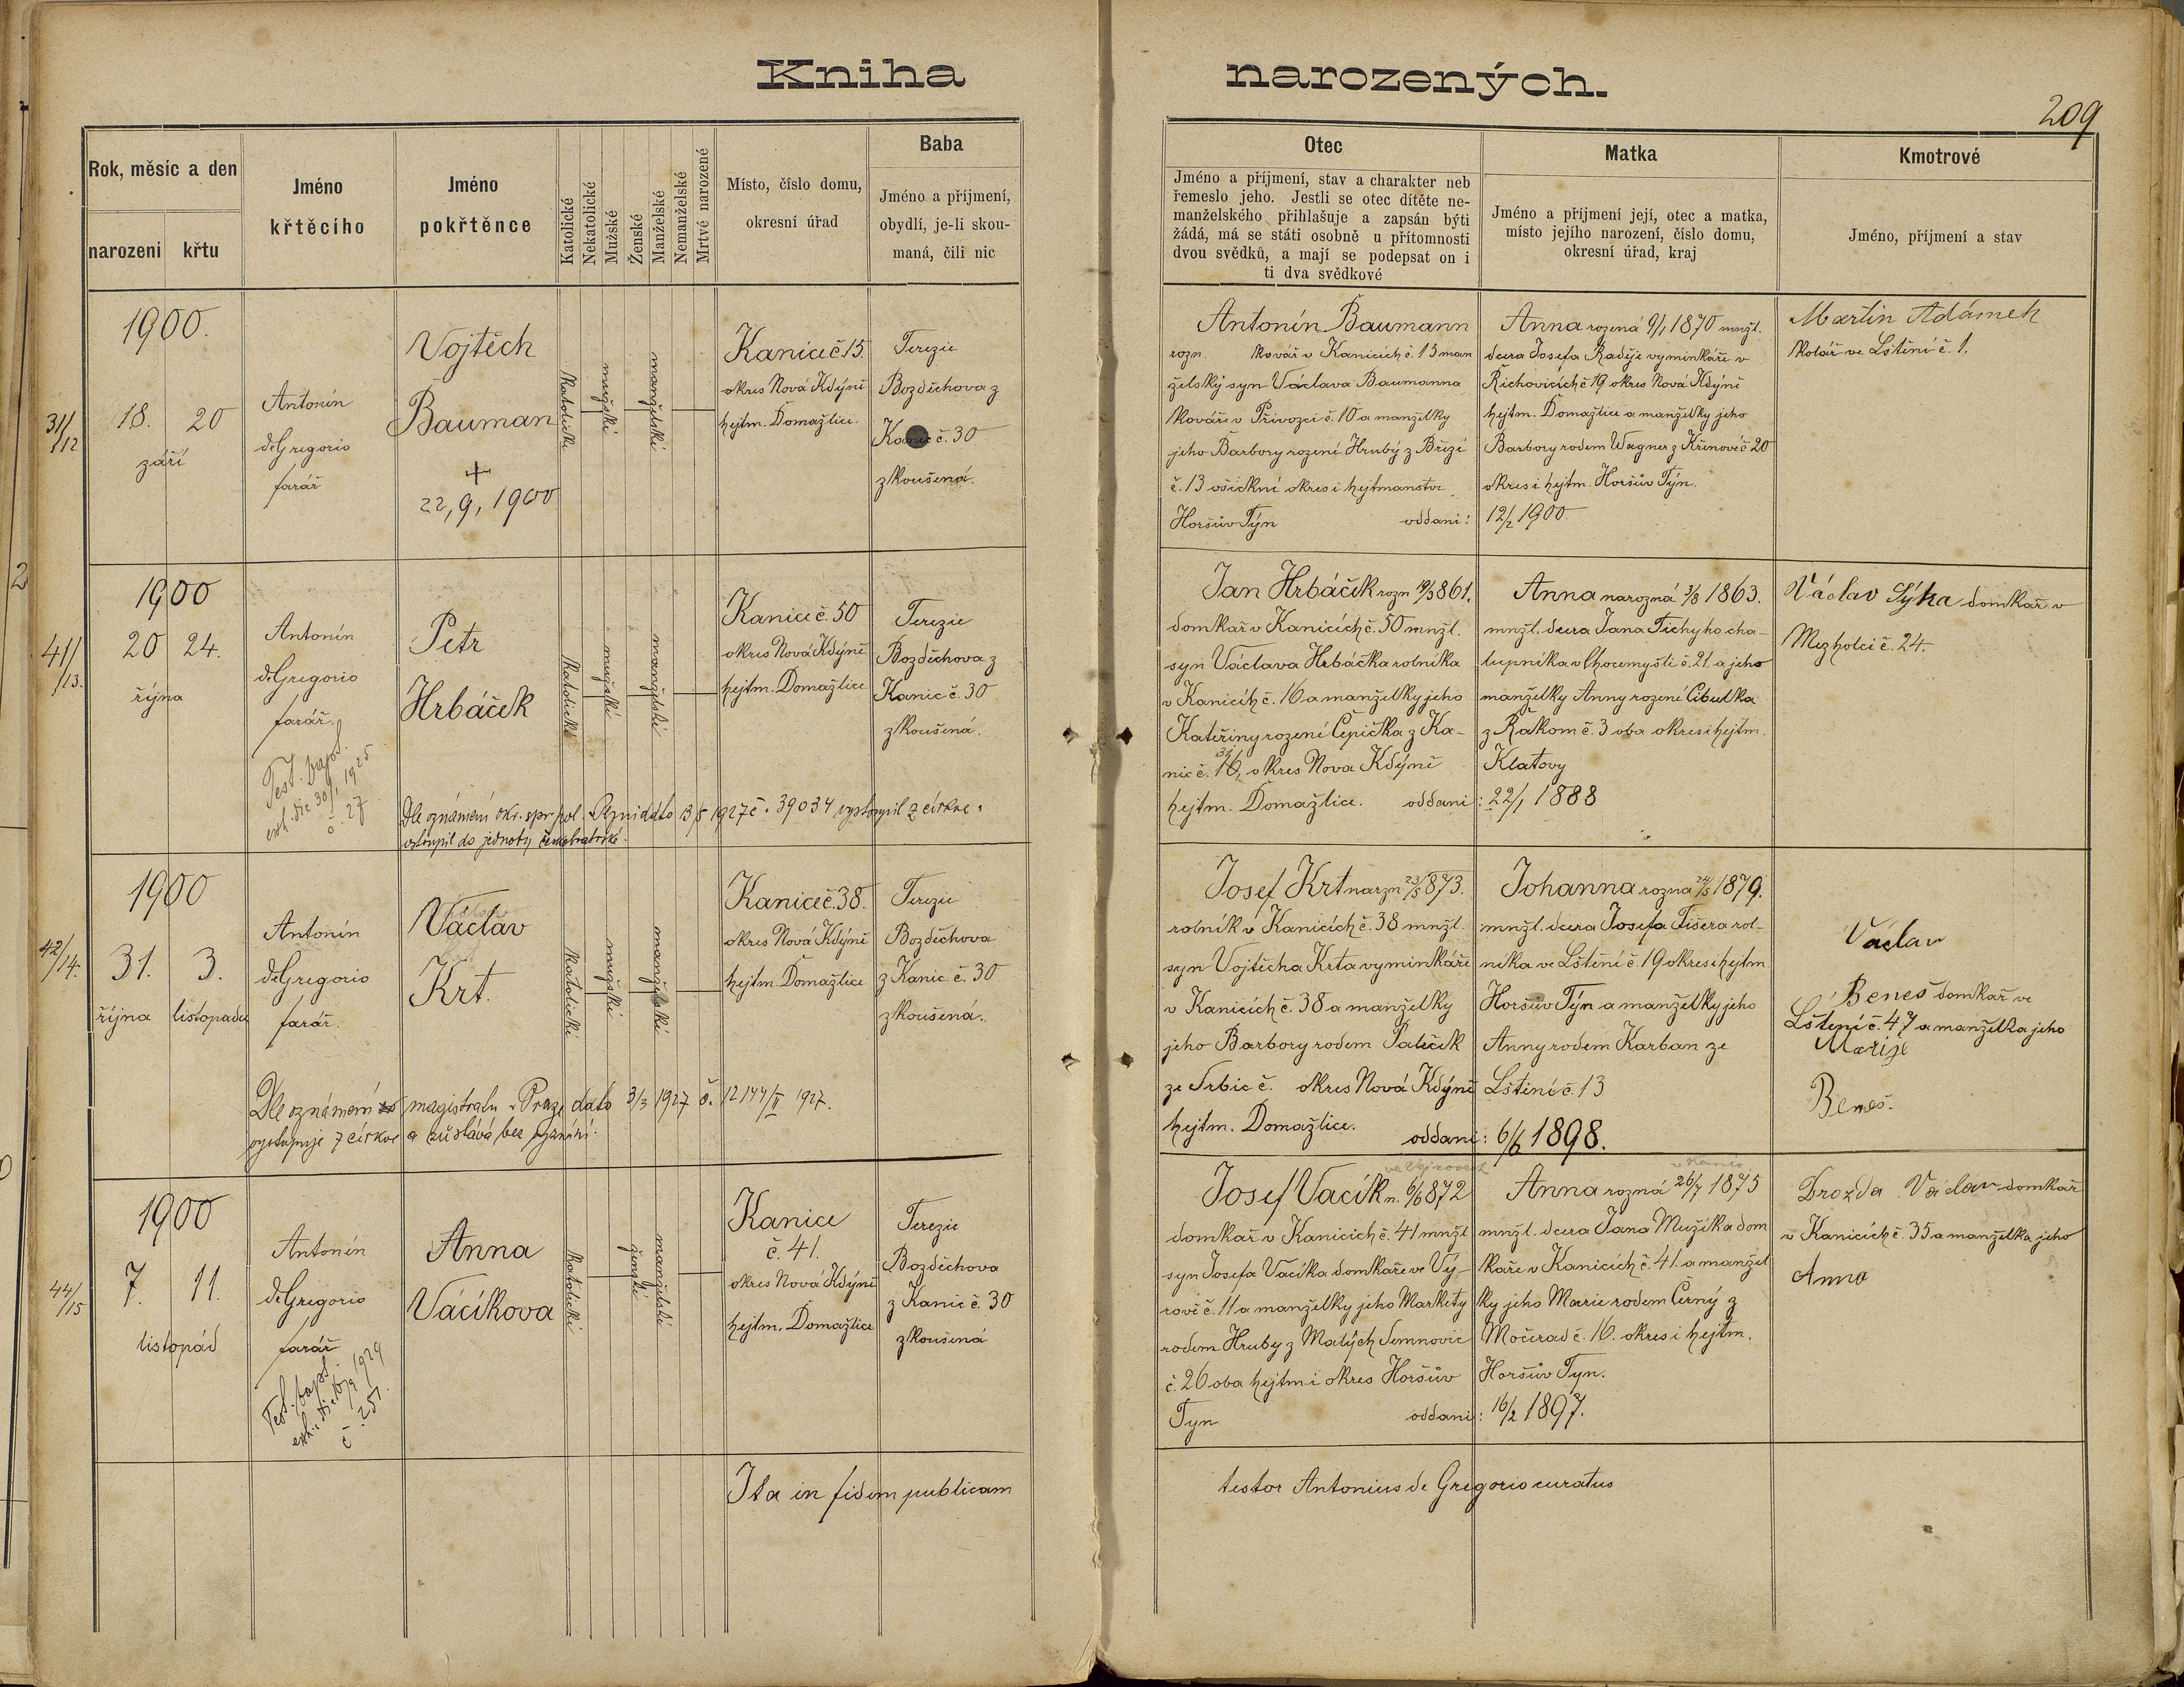 Kniha narozených.
209
Rok, měsíc a den
narození
křtu
Jméno
křtěcího
Jméno
pokřtěnce
Katolické
Nekatolické
Mužské
Ženské
Manželské
Nemanželské
Mrtvé narozené
Místo, číslo domu,
okresní úřad
Baba
Jméno a příjmení,
obydlí, je-li skou-
maná, čili nic
Otec
Jméno a příjmení, stav a charakter neb
řemeslo jeho. Jestli se otec dítěte ne-
manželského přihlašuje a zapsán býti
žádá, má se státi osobně u přítomnosti
dvou svědků, a mají se podepsat on i
ti dva svědkové
Matka
Jméno a příjmení její, otec a matka,
místo jejího narození, číslo domu,
okresní úřad, kraj
Kmotrové
Jméno, příjmení a stav
31/12
1900.
18. 20
září
Antonín
deGregorio
farář
Vojtěch
Bauman
+
22, 9, 1900
katolické
mužské
manželské
Kanice č 15.
okres Nová Kdýně
hejtm. Domažlice.
Terezie
Bozděchova z
Kanic č. 30
zkoušená.
Antonín Baumann
rozn. kovář v Kanicích č. 15 man
želský syn Václava Baumanna
kováře v Přívozci č. 10 a manželky
jeho Barbory rozené Hrubý z Březí
č. 13 okres i hejtmanstv.
Horšův Týn oddaní:
Anna rozená 9/1 1870 mnžl.
dcera Josefa Raděje vyminkáře v
Řichovicích č 19 okres Nová Kdýně
hejtm. Domažlice a manželky jeho
Barbory rodem Wagner z Křenové č 20
okres i hejtm. Horšův Týn.
12/2 1900
Martin Adámek
kolář ve Lštění č. 1.
41/13.
1900
20 24.
října
Antonín
deGregorio
farář.
Test. bapt.
exh. die 30/1 1925
č. 27
Petr
Hrbáček
katolické
mužské
manželské
Kanice č. 50
okres Nová Kdýně
hejtm. Domažlice
Terezie
Bozděchova z
Kanic č. 30
zkoušená.
Dle oznámení okr. spr. pol. v Plzni dato 13/5 1927 č. 39034 vystoupil z církve,
vstoupil do jednoty českobratrské.
Jan Hrbáček rozn 19/3 861.
domkář v Kanicích č. 50 mnžl.
syn Václava Hrbáčka rolníka
v Kanicích č. 16 a manželky jeho
Kateřiny rozené Čepička z Ka-
nic č. 16, okres Nova Kdýně
hejtm. Domažlice. oddaní:
Anna narozná 3/8 1863.
mnžl. dcera Jana Tichyho cha-
lupníka v Chocomyšli č. 21. a jeho
manželky Anny rozené Cibulka
z Rakom č. 3 oba okres i hejtm.
Klatovy
22/1 1888
Václav Sýka domkář v
Mezholci č. 24.
42/14.
1900
31. 3.
října listopadu
Antonín
deGregorio
farář.
Václav
Krt.
katolické
mužské
manželské
Kanice č. 38.
okres Nová Kdýně
hejtm. Domažlice
Terezie
Bozděchova
z Kanic č. 30
zkoušená.
Dle oznámení magistratu v Praze dato 3/3 1927 č. 12144/II 1927.
vystupuje z církve a zůstává bez vyznání.
Josef Krt narzn 23/5 873.
rolník v Kanicích č. 38 mnžl.
syn Vojtěcha Krta vyminkáře
v Kanicích č. 38 a manželky
jeho Barbory rodem Paleček
ze Srbic č. okres Nová Kdýně
hejtm. Domažlice. oddaní:
Johanna rozna 24/5 1879.
mnžl. dcera Josefa Tišera rol-
níka ve Lštění č. 19 okres i hejtm
Horšův Týn a manželky jeho
Anny rodem Karban ze
Lštění č. 13
6/6 1898.
Václav
Beneš domkář ve
Lštění č. 47 a manželka jeho
Marije
Beneš.
44/15
1900
7. 11.
listopád
Antonín
deGregorio
farář
Test. bapt.
č. 251.
Anna
Vacíkova
katolické
ženské
manželské
Kanice
č. 41.
okres Nová Kdýně
hejtm. Domažlice
Terezie
Bozděchova
z Kanic č. 30
zkoušená
Josef Vacík n. 6/6 872
domkář v Kanicích č. 41 mnžl
syn Josefa Vacíka domkáře ve Vý-
rově č. 11 a manželky jeho Markéty
rodem Hruby z Malých Semnovic
č. 26 oba hejtm. i okres Horšův
Tyn oddani:
Anna rozná 26/7 1875
mnžl. dcera Jana Mužíka dom
káře v Kanicích č. 41. a manžel
ky jeho Marie rodem Černý z
Močerad č. 16. okres i hejtm.
Horšův Tyn.
16/2 1897.
Drozda Václav domkář
v Kanicích č. 35 a manželka jeho
Anna
Ita in fidem publicam testor Antonius de Gregorio curatus